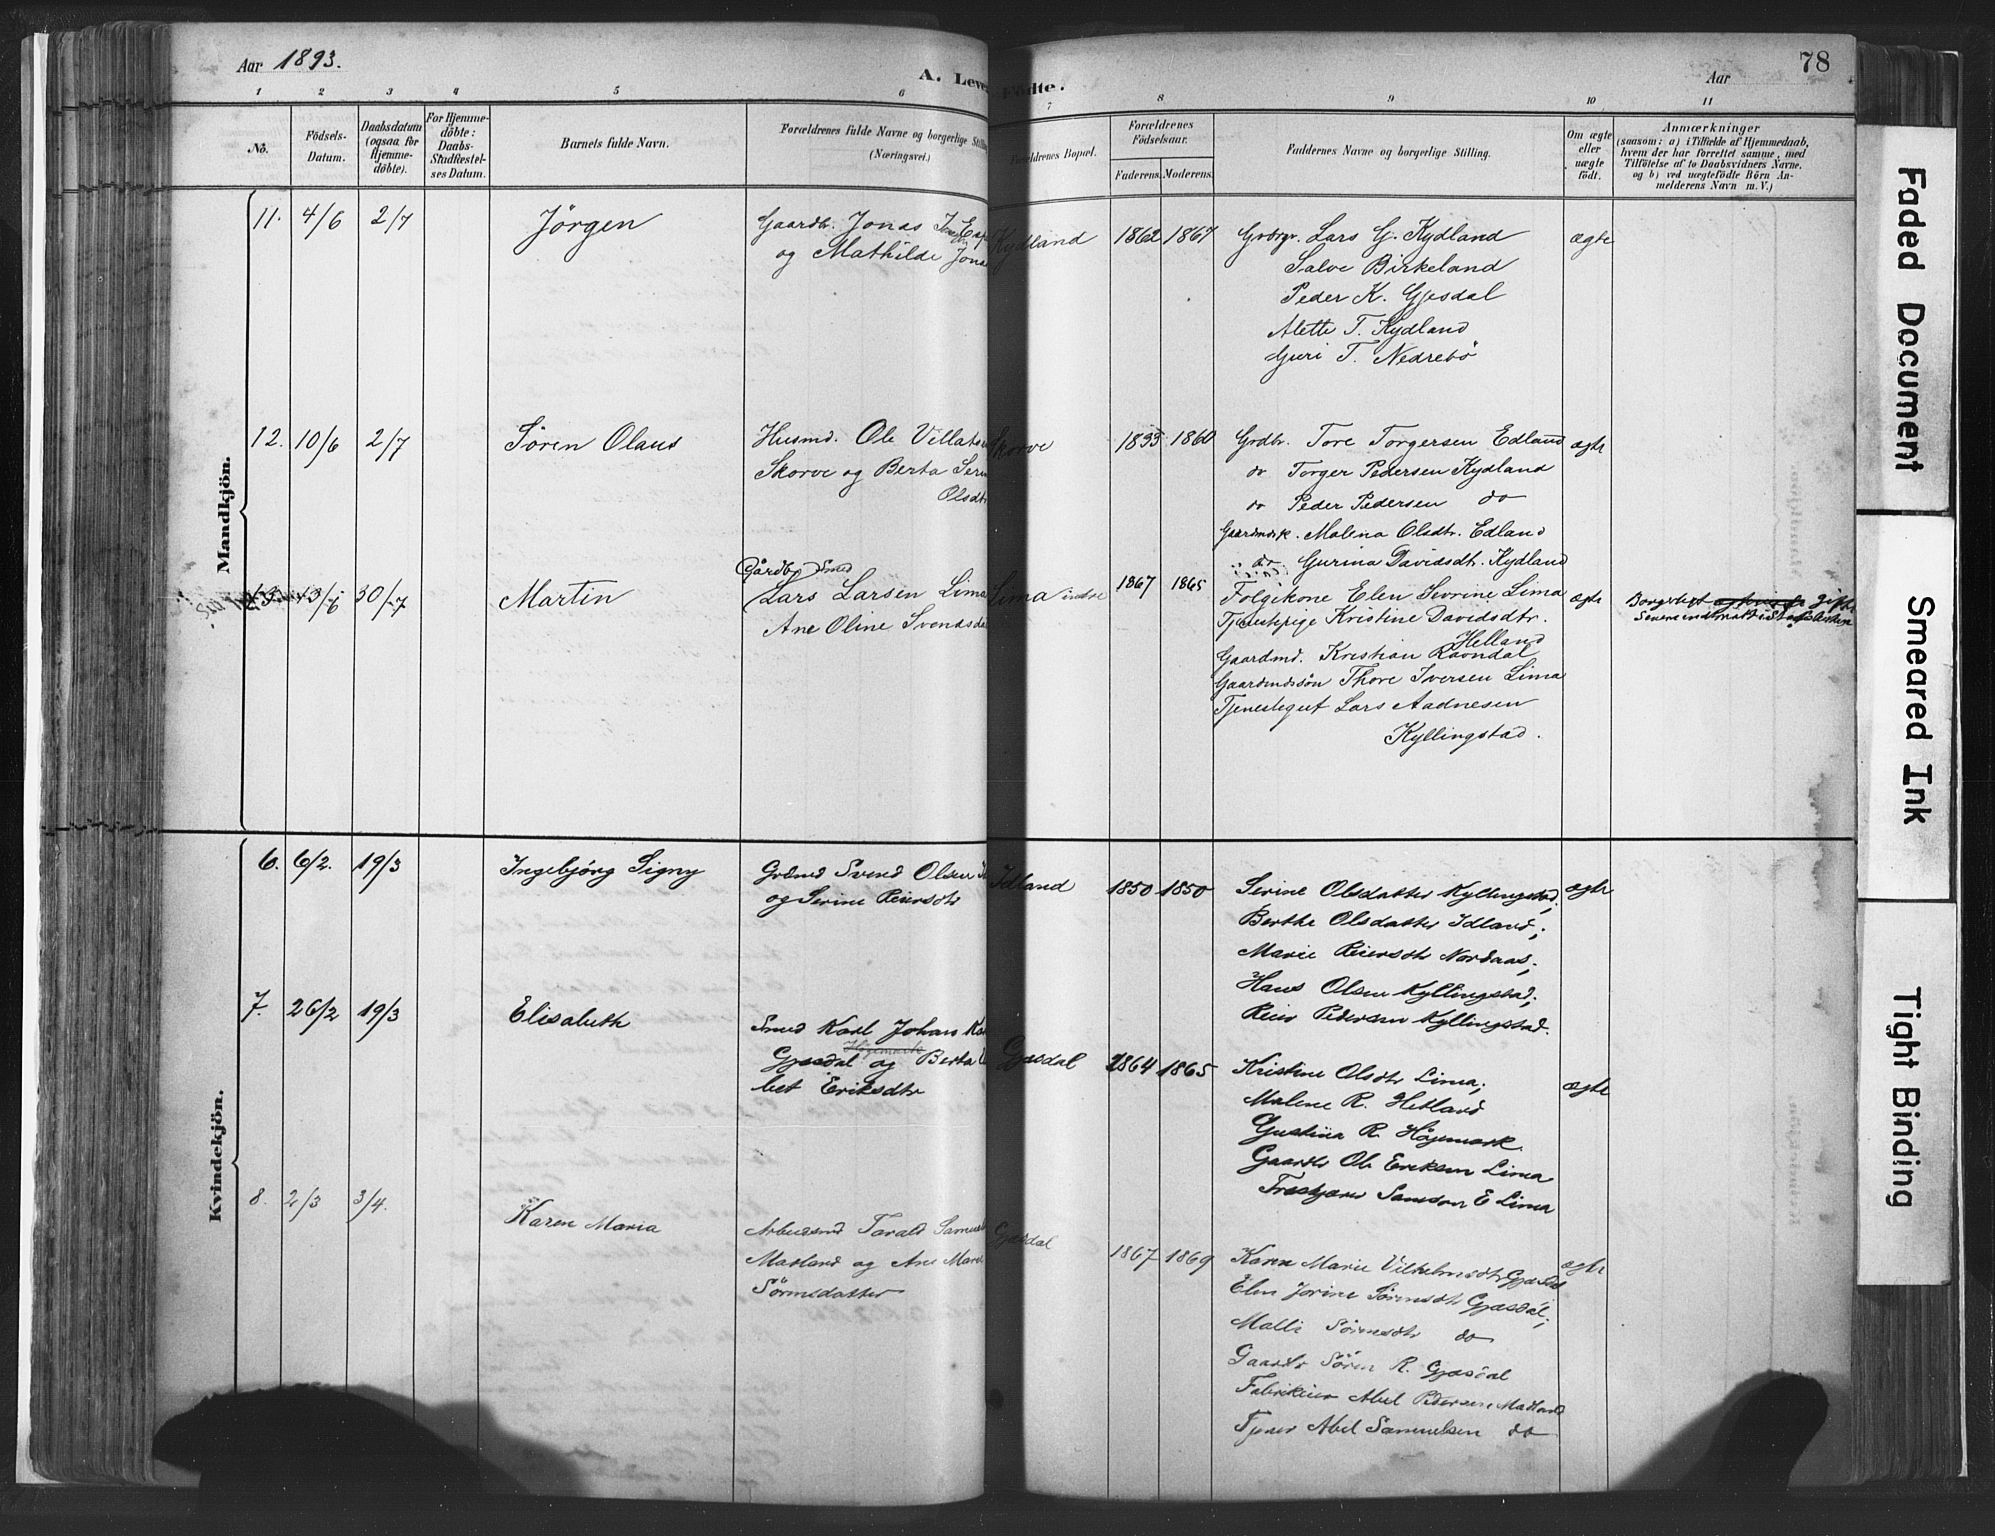 Aar 1893.
A. Leve
Födte.
Aar
78
1 2 3 4 5 6 7 8 9 10 11
No.
Födsels-
Datum.
Daabsdatum
(ogsaa for
Hjemme-
döbte).
For Hjemme-
döbte:
Daabs-
Stadfæstel-
ses Datum.
Barnets fulde Navn.
Forældrenes fulde Navne og borgerlige Stilling
(Næringsvei.)
Forældrenes Bopæl.
Forældrenes
Födselsaar.
Faderens. Moderens.
Faddernes Navne og borgerlige Stilling.
Om ægte
eller
uægte
födt.
Anmærkninger
(saasom: a) i Tilfælde af Hjemmedaab,
hvem der har forrettet samme, med
Tilföielse af to Daabsvidners Navne,
og b) ved uægtefödte Börn An-
melderens Navn m. V.)
Mandkjön.
11. 4/6 2/7 Jörgen
Gaardbr. Jonas
og Mathilde Jona
Kydland
1862 1867
Lars G. Kydland
Salve Birkeland
Peder K. Gjesdal
Alette T. Kydland
Guri T. Nedrebö
ægte
12. 10/6 2/7 Sören Olaus
Husmd. Ole Villats
Skorve og Berta Ser
Olsdtr
Skorve
1860
Grdbr. Tore Torgersen Edland
do Torger Pedersen Kydland
do Peder Pedersen do
Malena Olsdtr. Edland
do Gurina Davidsdtr. Kydland
ægte
13/6 30/7 Martin
Gårdbr Smed
Lars Larsen Lima
Ane Oline Svendsd
Lima indre
1867 1865
Folgekone Elen Sevrine Lima
Tjenestepige Kristine Davidsdtr.
Helland
Gaardmd. Kristian Ravndal
Gaardmdssön Thore Iversen Lima
Tjenestegut Lars Aadnesen
Kyllingstad.
ægte
Borgerligt gift
Kvindekjön.
6. 6/2. 19/3 Ingebjörg Signy
Grdmd Svend Olsen
og Serine Reiersdtr
Idland
1850 1850
Serine Olsdatter Kyllingstad;
Berthe Olsdatter Idland;
Marie Reiersdtr Nordaas;
Hans Olsen Kyllingstad;
Reier Pedersen Kyllingstad.
ægte
7. 26/2 19/3 Elisabeth
Smed Karl Johan Ka
Höjemark
Gjæsdal og Berta
bet Eriksdtr
Gjæsdal
1864 1865
Kristine Olsdtr Lima;
Malene R. Hetland
Gustina R. Höjemark
Gaardbr Ole Eriksen Lima
Træskjærer Samson E Lima
ægte
8. 2/3 3/4. Karen Maria
Arbeidsmd Tarald Samuel
Matland og Ane Mar
Sörensdatter
Gjæsdal
1867 1869
Karen Marie Vilhelmsdtr Gjæsdal
Elen Jorine Sörensdtr Gjæsdal;
Malli Sörensdtr do
Gaardbr Sören R. Gjæsdal
Fabrikeier Abel Pedersen Matland
Tjener Abel Samuelsen do
ægte
Faded Document
Smeared Ink
Tight Binding